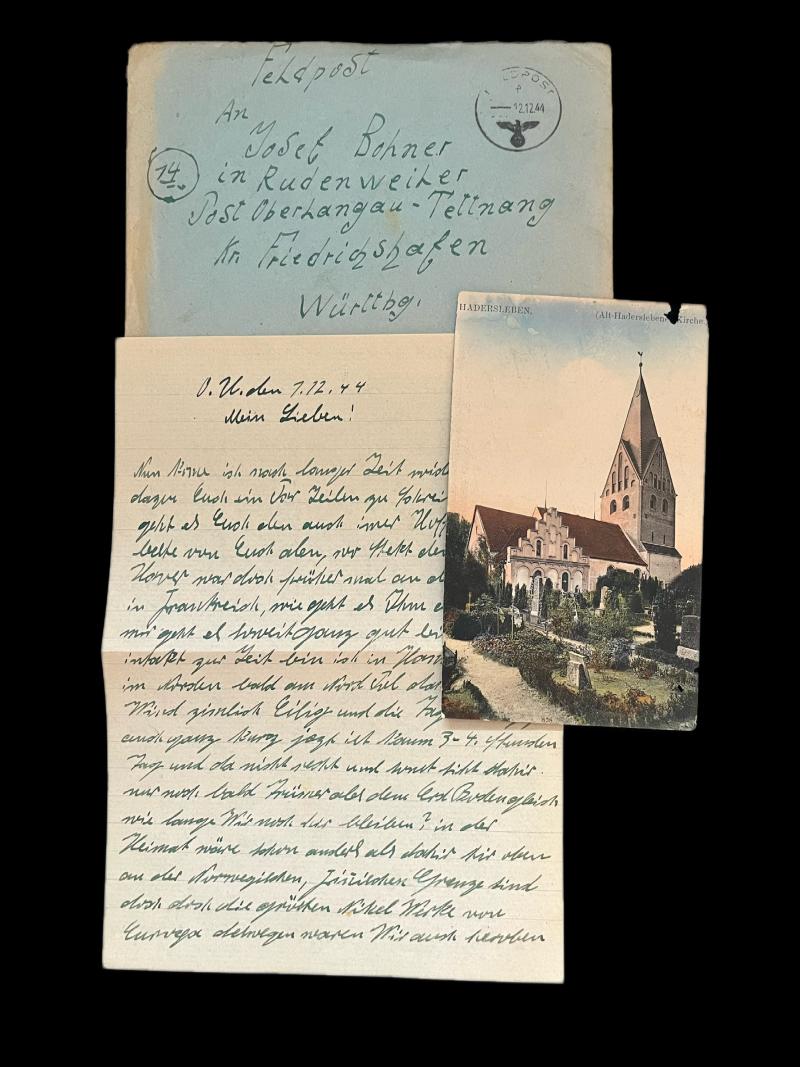 Feldpost
An
Josef Bohner
in Rudenweiler
Post Oberlangau-Tettnang
Kr Friedrichshafen
Württbg.
14
FELDPOST
12.12.44
HADERSLEBEN.
(Alt-Haderslebener Kirche.)
O. U. den 7.12.44
Mein Lieben!
Nun ist nach langer Zeit
dazu Euch ein Par Zeilen zu
geht es Euch den auch imer
von Euch alen, wo stekt
war doch früher mal an
in Frankreich, wie geht es Ihm
mir geht es soweit ganz gut
intakt zur Zeit bin ich in
im Norden bald am Nord Pol
Wind zimlich Eisig und die
auch ganz Kurz jezt ist Kaum 3-4. Stunden
Tag und da nicht recht und sonst siht
nur noch bald Trümer als dem Erd Boden gleich
wie lange Wir noch hir bleiben? in der
Heimat wäre schon anders als dahir hir oben
an der Norwegischen, Grenze sind
doch doch die grösten Nikel Werke von
deswegen waren Wir auch heroben